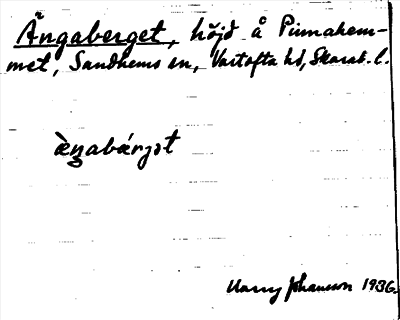 Ängaberget, höjd å Pirmahem-
met, Sandhems sn, Vartofta hd, Skarab. l.
æ̀ŋabárjət
Harry Johansson 1936.